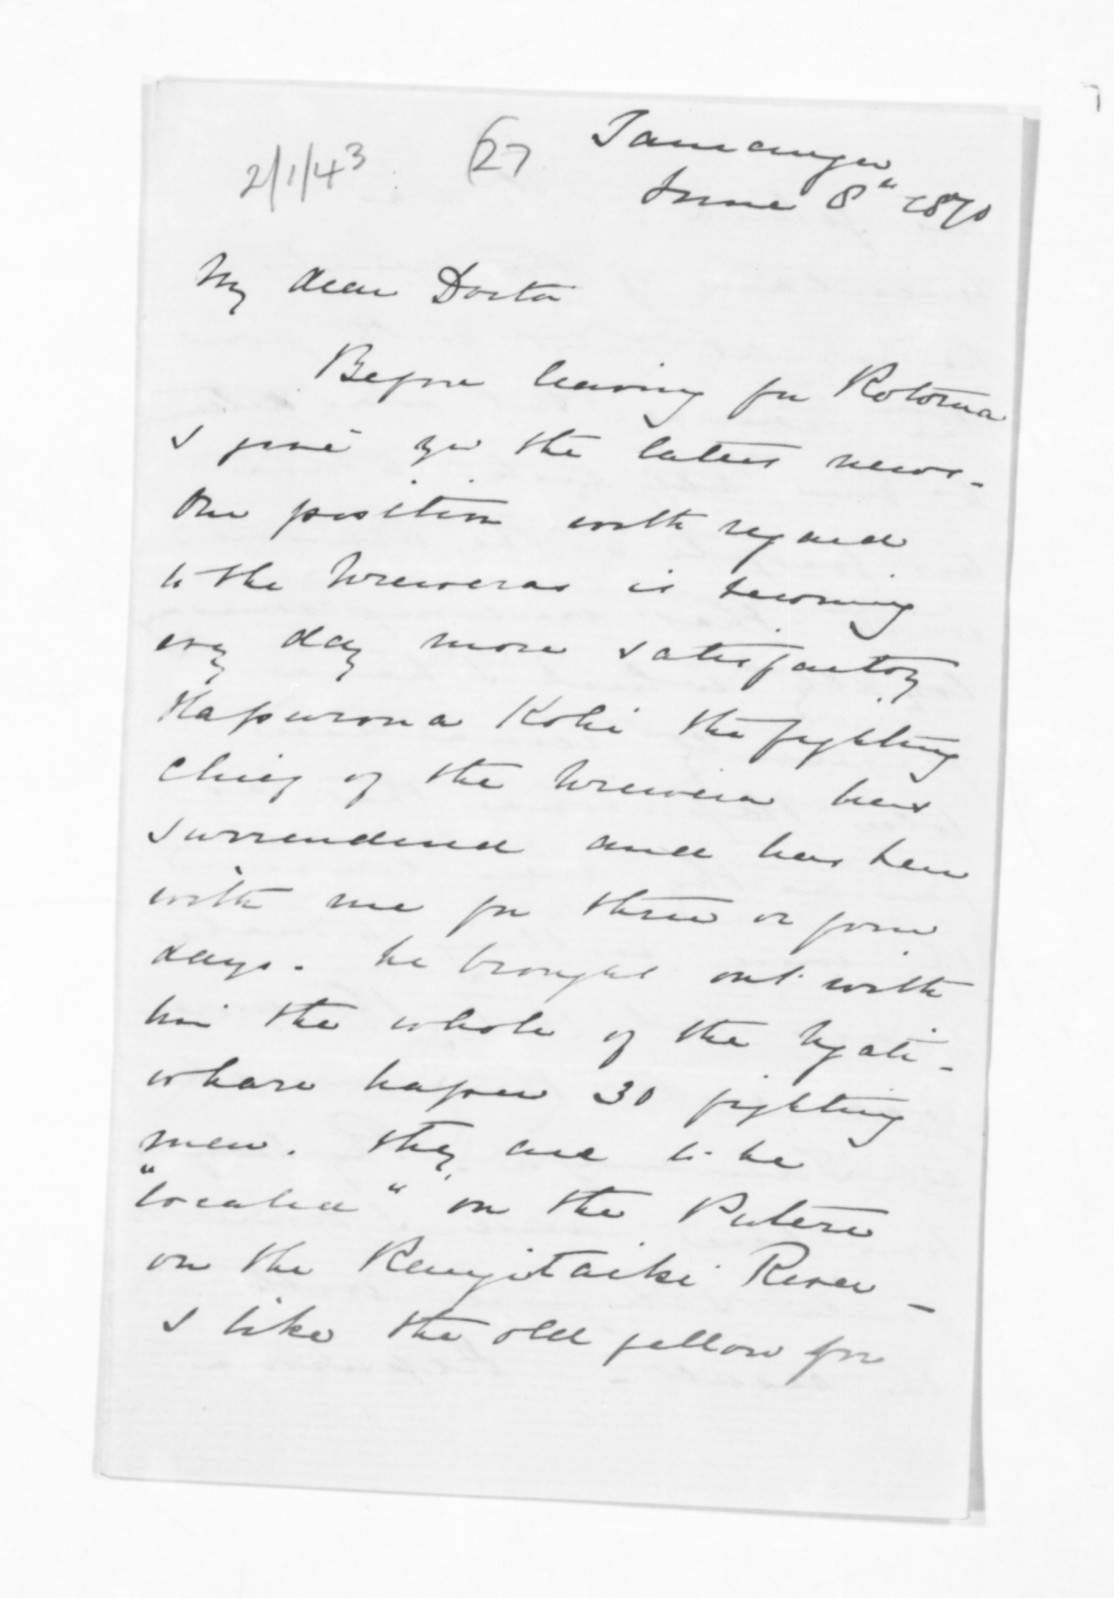 2/1/43 (27
Tauranga
June 8" 1870
My dear Doctor
Before leaving for Rotorua
I give you the latest news.
Our position with regard
to the Urewera is becoming
evry day more satisfactory
Hapurona Kohi the fighting
Chief of the Urewera has
surrendered and has been
with me for three or four
days. he brought out with
him the whole of the Ngati-
whare hapu 30 fighting
men. they are to be
"located" on the Putere
on the Rangitaiki River -
I like the old fellow for